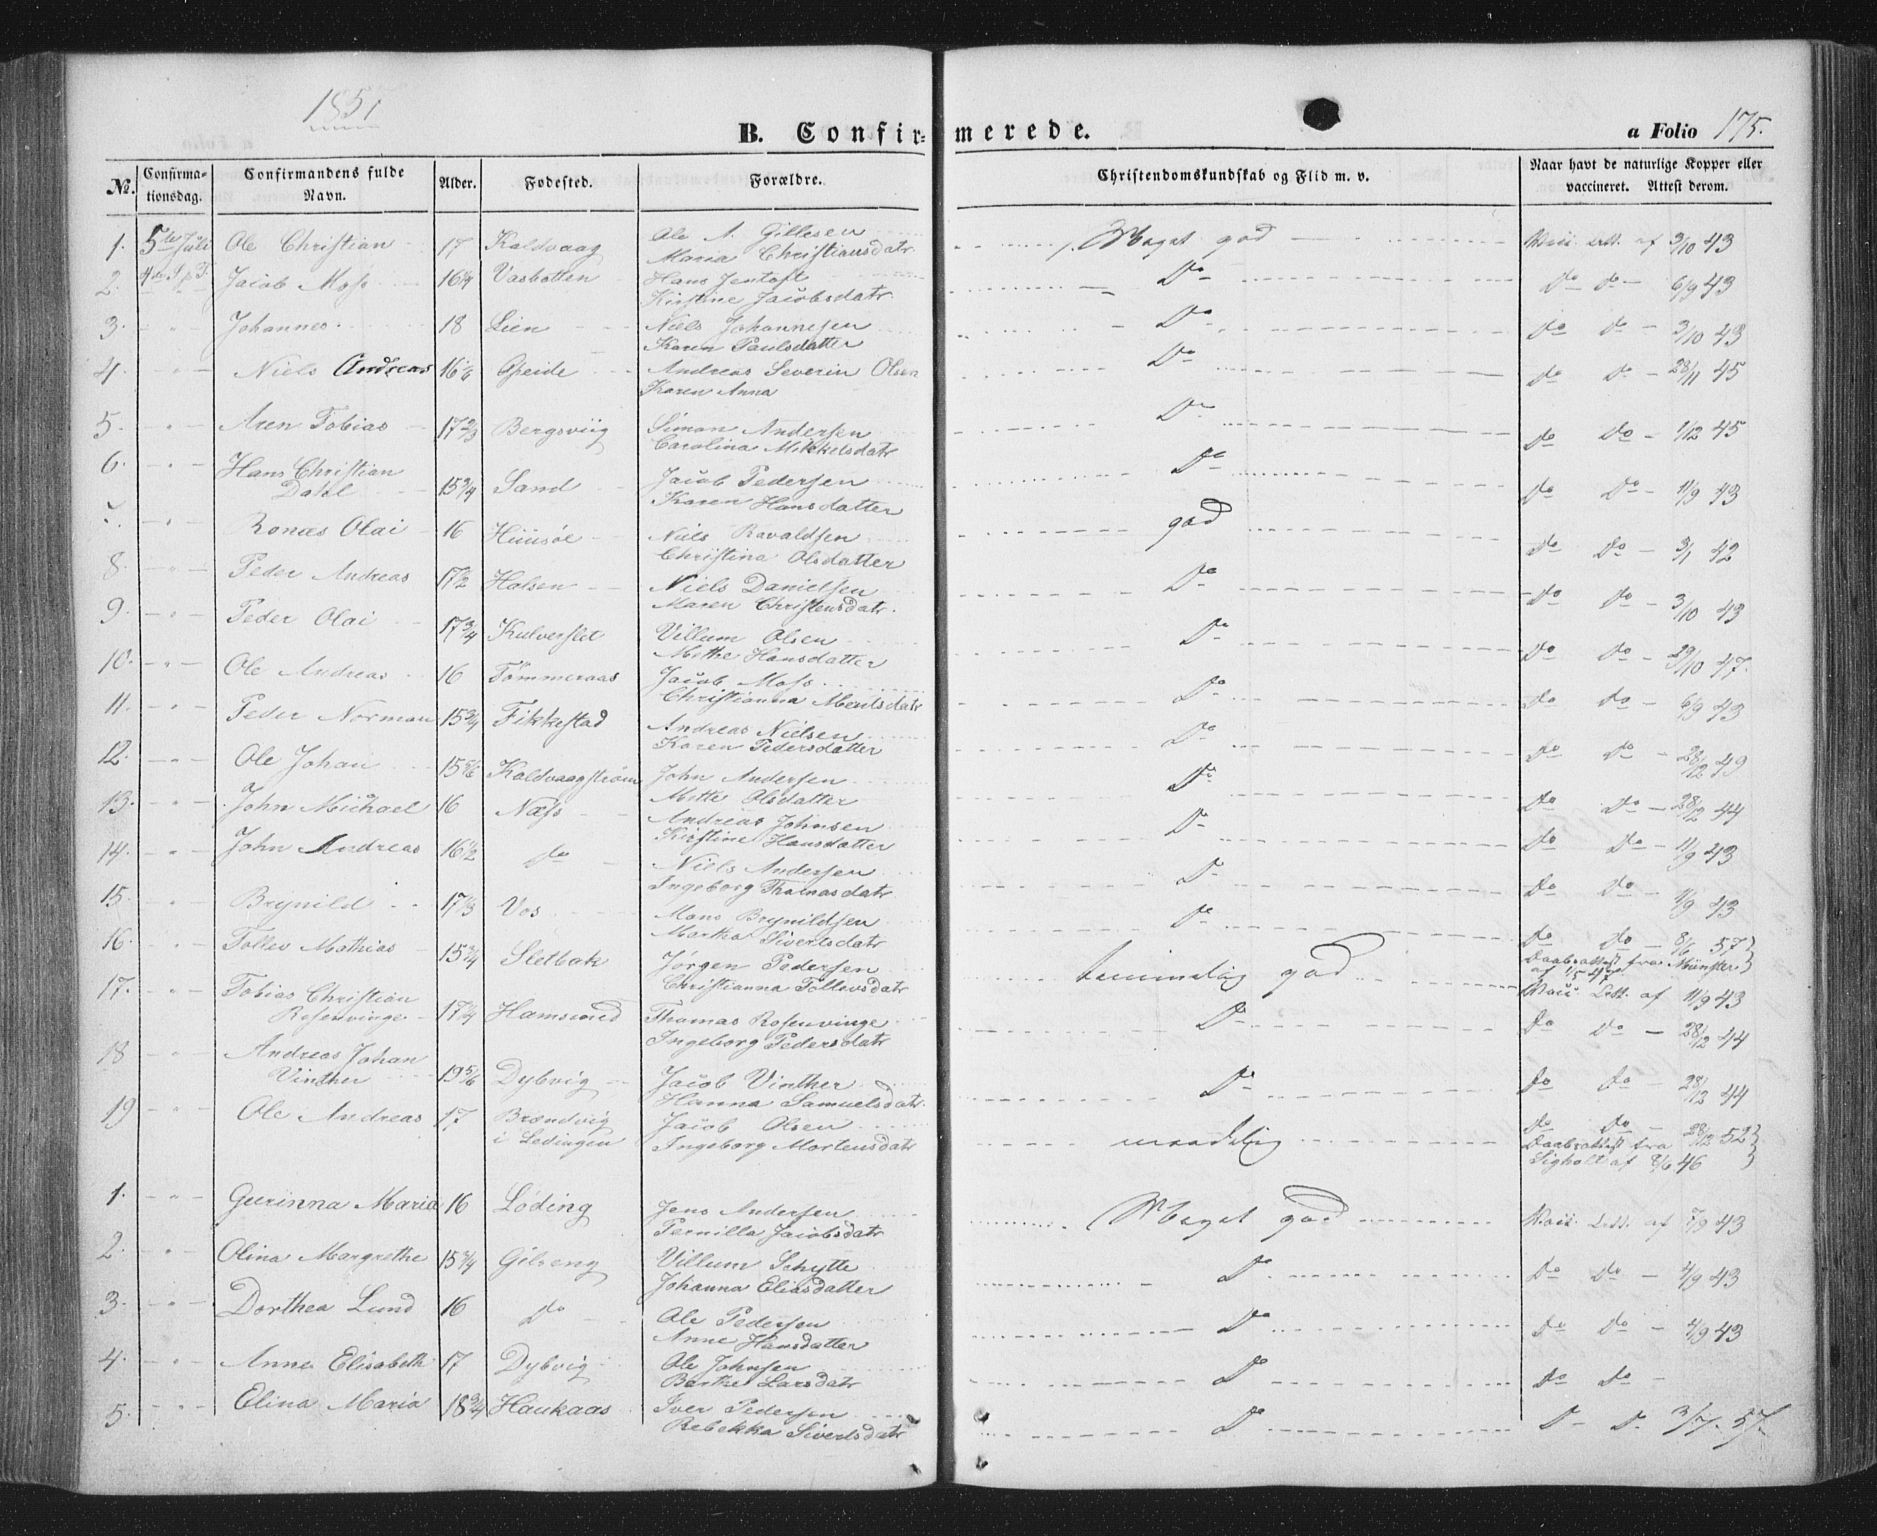 1851
B. Confirmerede.
a Folio 175.
No.
Confirmationsdag.
Confirmandens fulde Navn.
Alder.
Fødested.
Forældre.
Christendomskundskab og Flid m. v.
Naar havt de naturlige Kopper eller vaccineret. Attest derom.
1. 5te Juli Ole Christian 17 Kaldvaag Ole A. Gillesen Maget god Vacc. Att. af 3/10 43
4de S. p. T. Maria Christiansdatr
2. Jacob Moss 16 1/4 Vasbotten Hans Jentoft Do Do do 6/9 43
Kirstine Jacobsdatr
3. Johannes 18 Lien Niels Johannesen Do Do do 3/10 43
Karen Paulsdatter
4. Niels Andreas 16 1/6 Andreas Severin Olsen Do Do Do 28/11 45
Karen Anna
5. Aren Tobias 17 2/3 Bergsviig Simon Andersen Do Do Do 1/12 45
Carolina Mikkelsdatr
6. Hans Christian Dahl 15 3/4 Sand Jacob Pedersen Do Do Do 11/9 43
Karen Hansdatter
7. Olai 16 Niels Ravaldsen god Do Do 3/1 42
Christina Olsdatter
8. Peder Andreas 17 1/2 Holsen Niels Danielsen Do Do Do 3/10 43
Maren Christensdatr.
9. Peder Olai 17 3/4 Villum Olsen Do Do Do 29/10 47.
Methe Hansdatter
10. Ole Andreas 16 Tømmeraas Jacob Moss Do Do Do 6/9 43
Christianna Mentsdatr
11. Peder Norman 15 3/4 Fikkestad Andreas Nielsen Do Do Do 28/12 49
Karen Pedersdatter
12. Ole Johan 15 5/6 Kaldvaagstrøm John Andersen Do Do Do 28/12 44
Mette Olsdatter
13. John Michael 16 Næss Andreas Johnsen Do Do Do 11/9 43
Kirstine Hansdatter
14. John Andreas 16 1/2 do Niels Andersen Do Do Do 4/9 43
Ingeborg Thomasdatr
15. Brynild 17 1/3 Vos Mons Brynildsen Do Do do 8/6 57
Martha Sivertsdatr Daabsattest fra Münster af 1/5 47
16. Tollev Mathias 15 3/4 Sletbak Jørgen Pedersen temmelig god Vacc. Att. af 11/9 43
Christianna Tollevsdatr
17. Tobias Christian Rosenvinge 17 1/4 Hamsund Thomas Rosenvinge Do Do Do 28/12 44
Ingeborg Pedersdatr
18 Andreas Johan Vinther 19 5/6 Dybvig Jacob Vinther Do Do Do 28/12 44
Hanna Samuelsdatr.
19 Ole Andreas 17 Brændvig i Lødingen Jacob Olsen maadelig do do 28/12 52
Ingeborg Mortensdatr Daabsattest fra Sigholt af 8/6 46
1. Gurinna Maria 16 Løding Jens Andersen Maget god Vacc. Att. af 7/9 43
Pernilla Jacobsdatr
2. Olina Margrethe 15 3/4 Gilseng Villum Schytte Do Do Do 4/9 43
Johanna Eliasdatter
3. Dorthea Lund 16 do Ole Pedersen Do Do Do 4/9 43
Anne Hansdatter
4. Anne Elisabeth 17 Dybvig Ole Johnsen Do Do Do
Berthe Larsdatr
5. Elina Maria 18 3/4 Haukaas Iver Pedersen Do D D 3/7. 57.
Rebekka Sivertsdatr